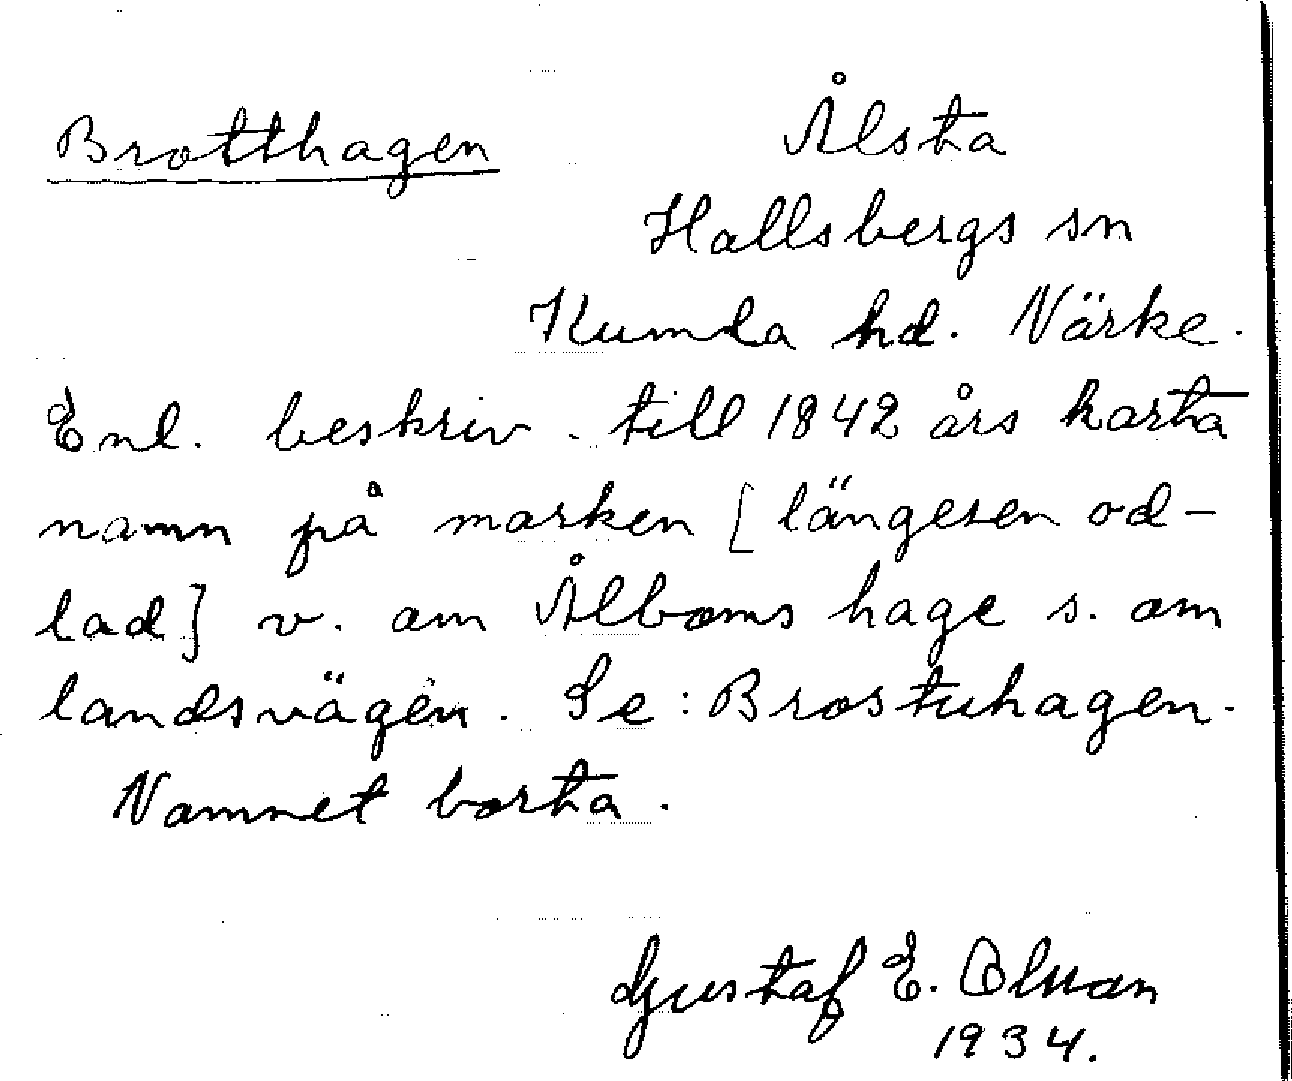 Brotthagen
Ålsta
Hallsbergs sn
Kumla hd. Närke.
Enl. beskriv. till 1842 års karta
namn på marken [längesen od-
lad] v. om Ålboms hage s. om
landsvägen. Se: Brostuhagen.
Namnet borta.
Gustaf E. Olsson
1934.